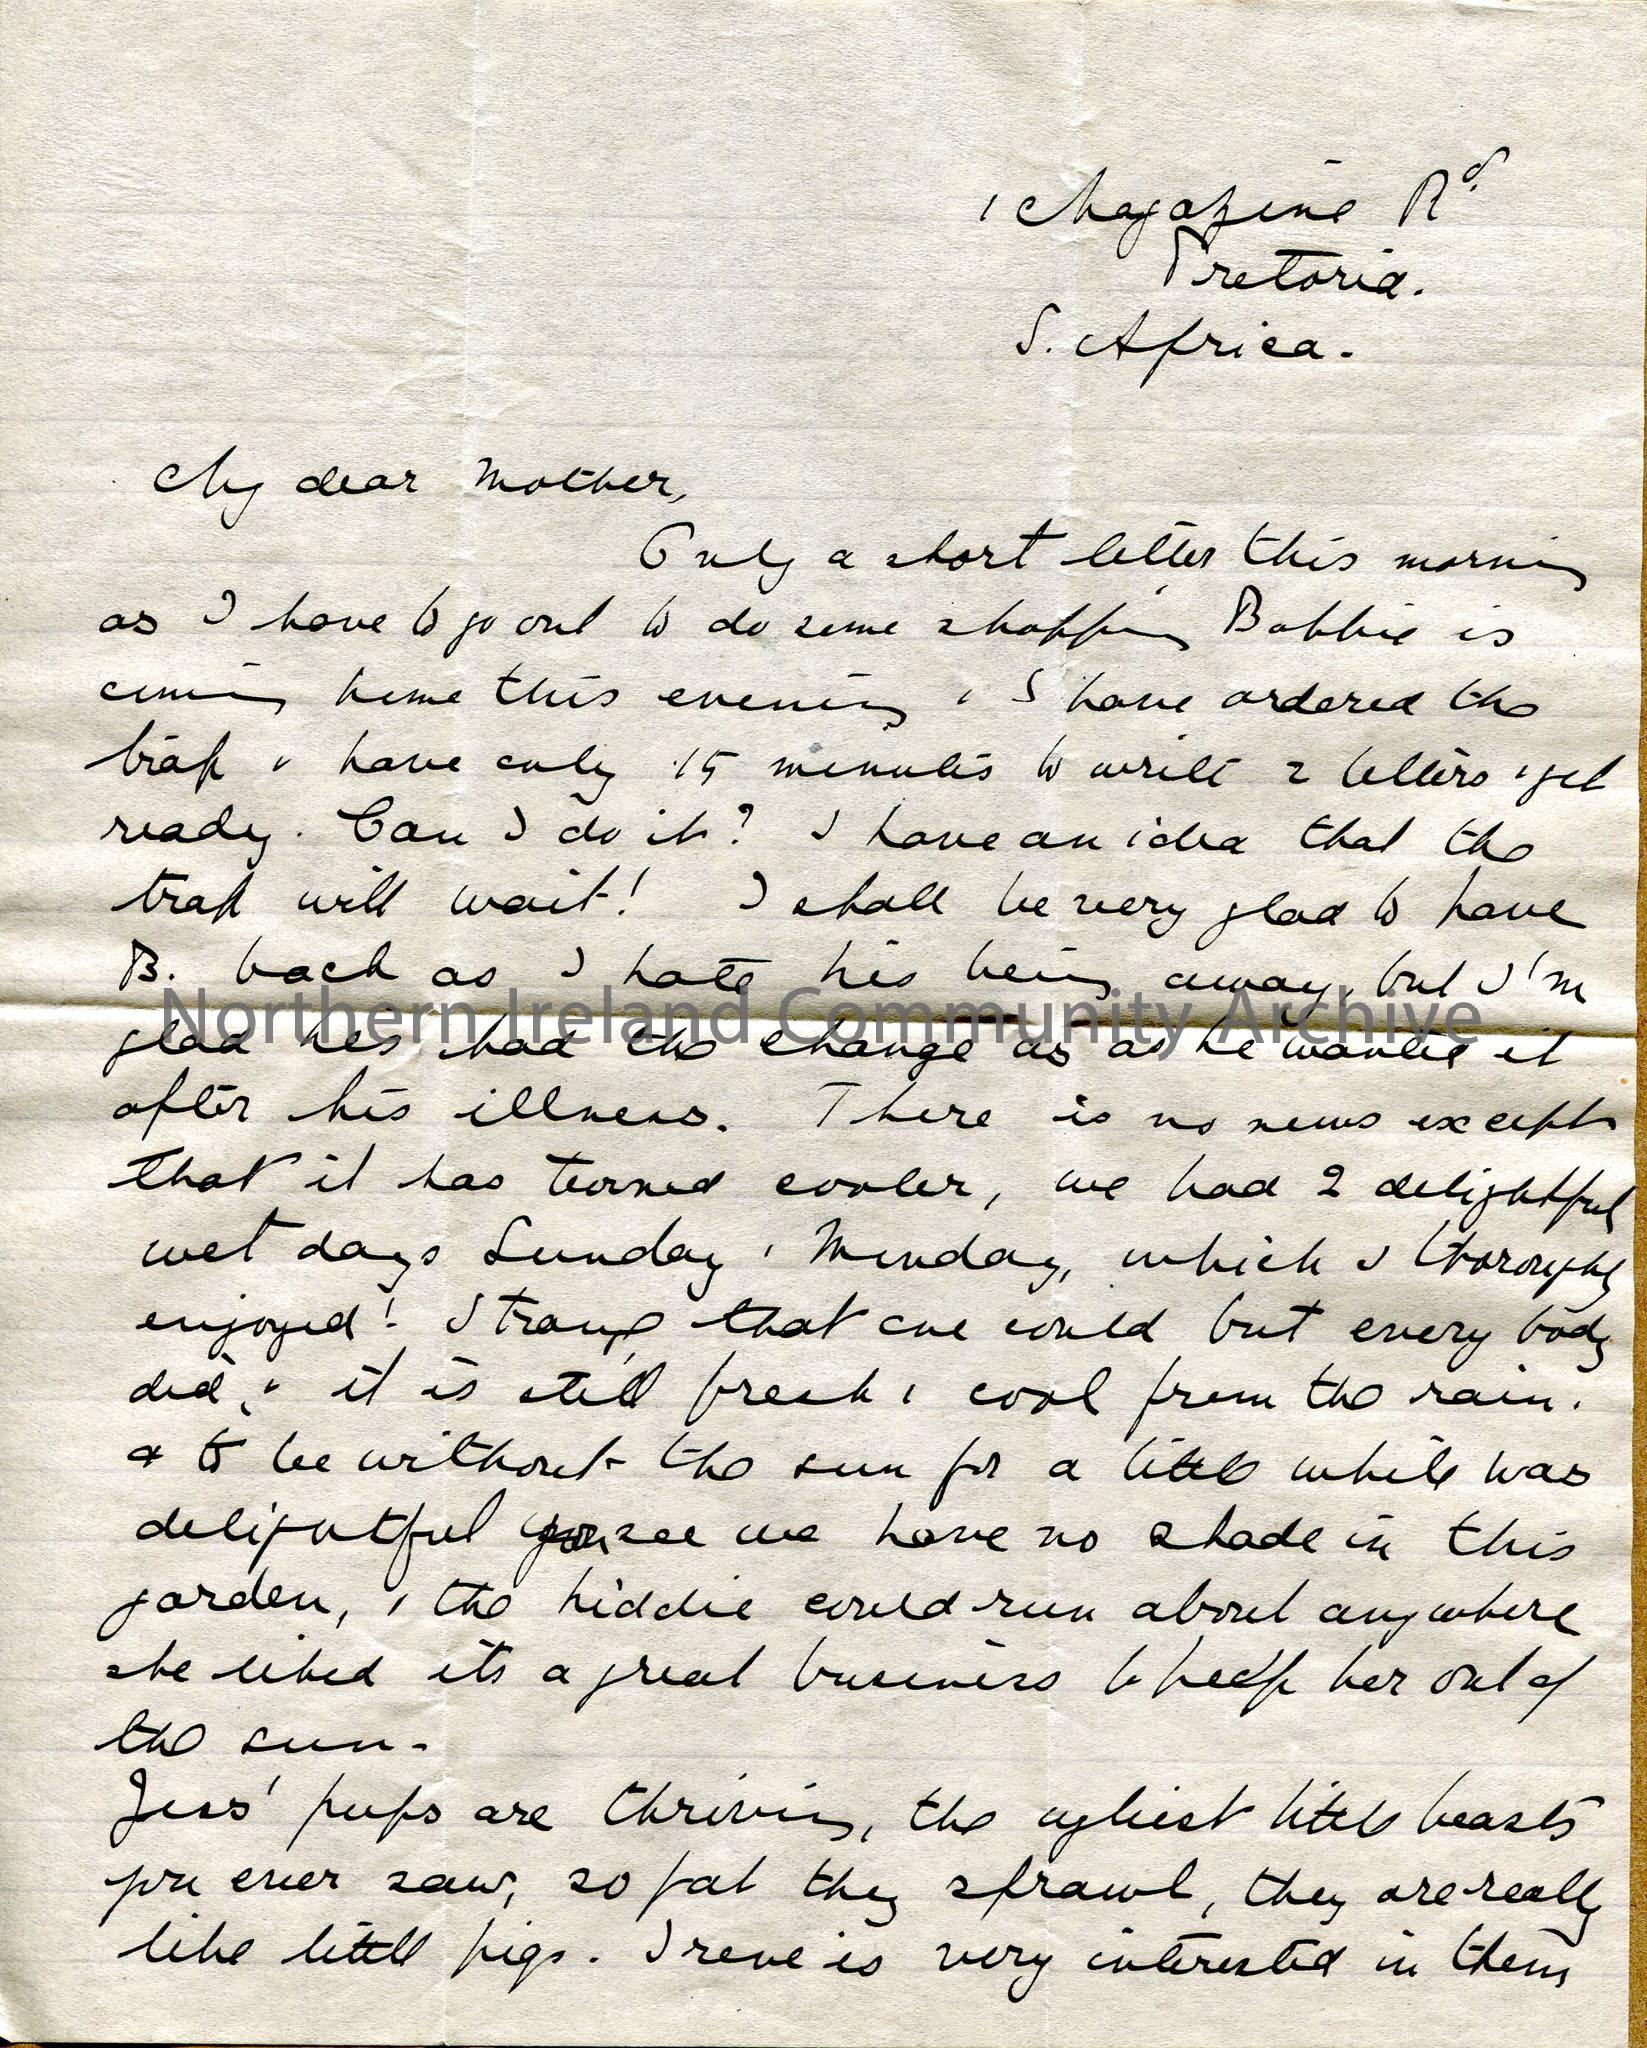 1 Magazine Rd
Pretoria.
S. Africa.
My dear Mother,
Only a short letter this morning
as I have to go out to do some shopping Bobbie is
coming home this evening & I have ordered the
trap & have only 15 minutes to write 2 letters & get
ready. Can I do it? I have an idea that the
trap will wait! I shall be very glad to have
B. back as I hate his being away, but I'm
Northern Ireland Community Archive
glad hes had the change as as he wanted it
after his illness. There is no news except
that it has turned cooler, we had 2 delightful
wet days Sunday & Monday, which I thoroughly
enjoyed! Strange that one could but every body
did, & it is still fresh & cool from the rain.
& to be without the sun for a little while was
delightful you see we have no shade in this
garden, & the kiddie could run about anywhere
she liked its a great business to keep her out of
the sun.
Jess' pups are thriving, the ugliest little beasts
you ever saw, so fat they sprawl, they are really
like little pigs. Irene is very interested in them